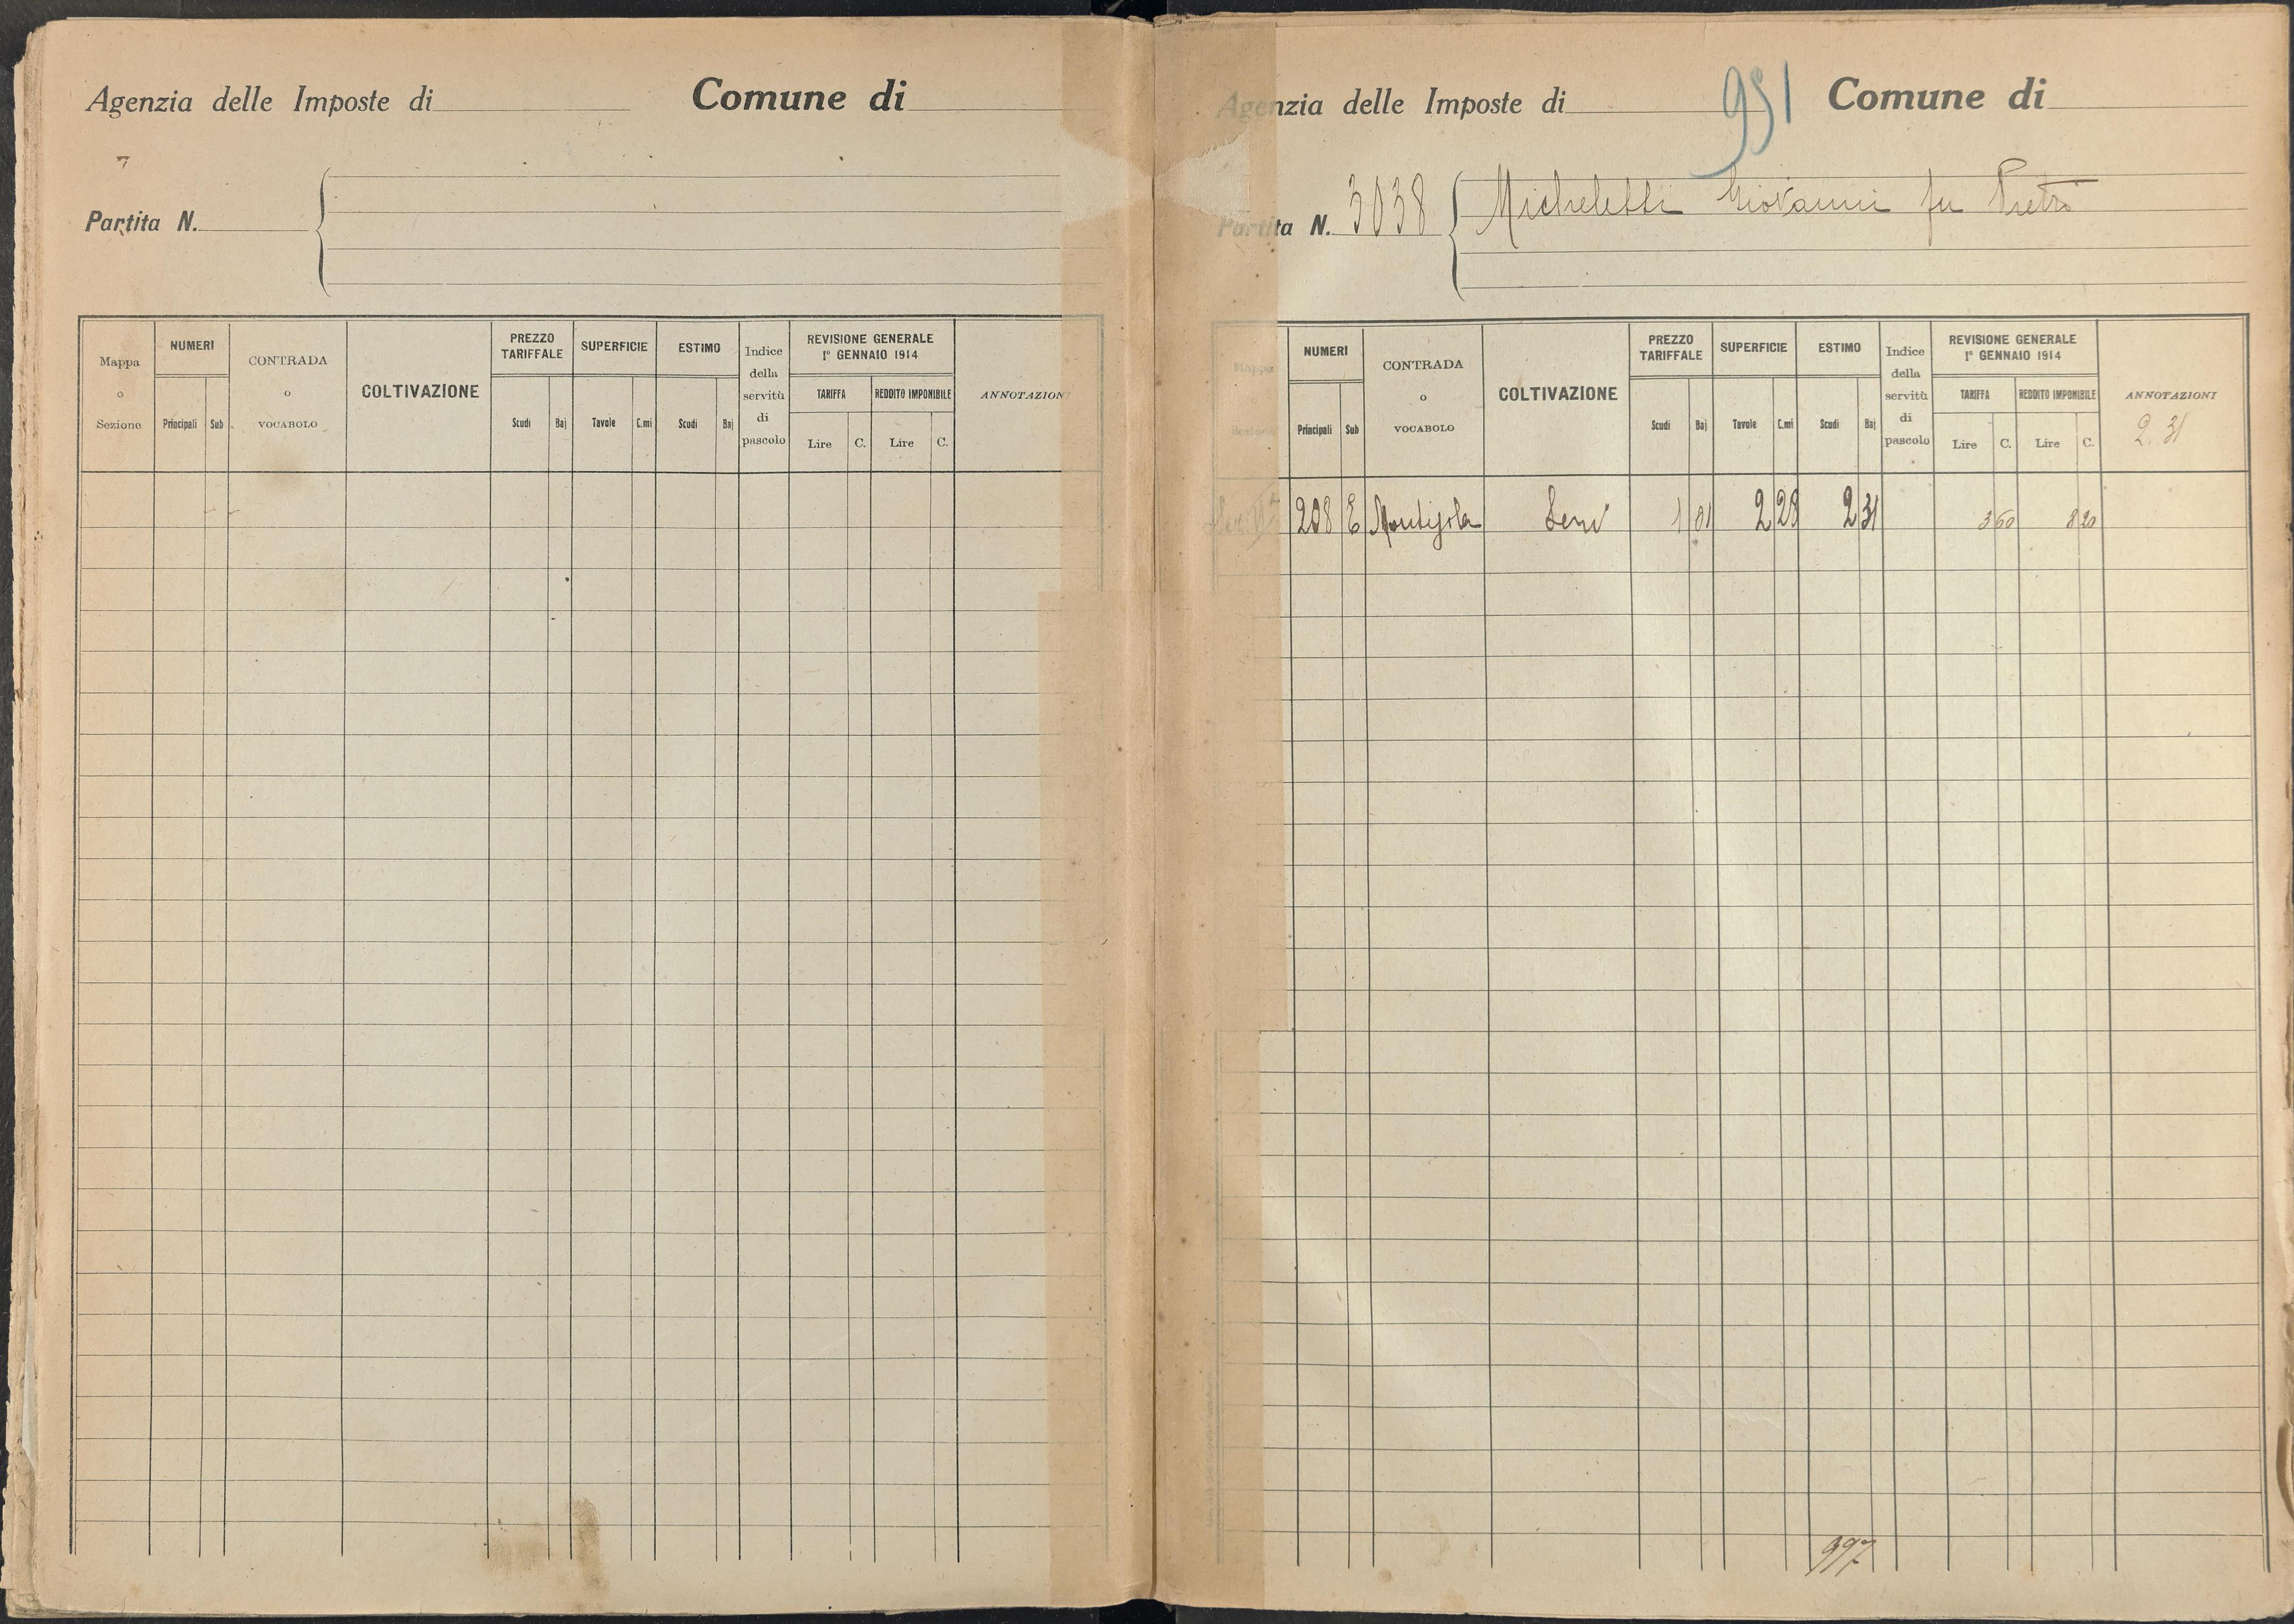 Agenzia delle Imposte di Comune di
Partita N.
Mappa o Sezione NUMERI Principali Sub CONTRADA o VOCABOLO COLTIVAZIONE PREZZO TARIFFALE Scudi Baj SUPERFICIE Tavole C.mi ESTIMO Scudi Baj Indice della servitù di pascolo REVISIONE GENERALE 1° GENNAIO 1914 TARIFFA Lire C. REDDITO IMPONIBILE Lire C. ANNOTAZIONI
951
Agenzia delle Imposte di Comune di
Partita N. 3038 Micheletti Giovanni fu Pietro
Mappa o Sezione NUMERI Principali Sub CONTRADA o VOCABOLO COLTIVAZIONE PREZZO TARIFFALE Scudi Baj SUPERFICIE Tavole C.mi ESTIMO Scudi Baj Indice della servitù di pascolo REVISIONE GENERALE 1° GENNAIO 1914 TARIFFA Lire C. REDDITO IMPONIBILE Lire C. ANNOTAZIONI
2.31
208 E Sem 1 01 2 28 2 31 3 60 8 20
997